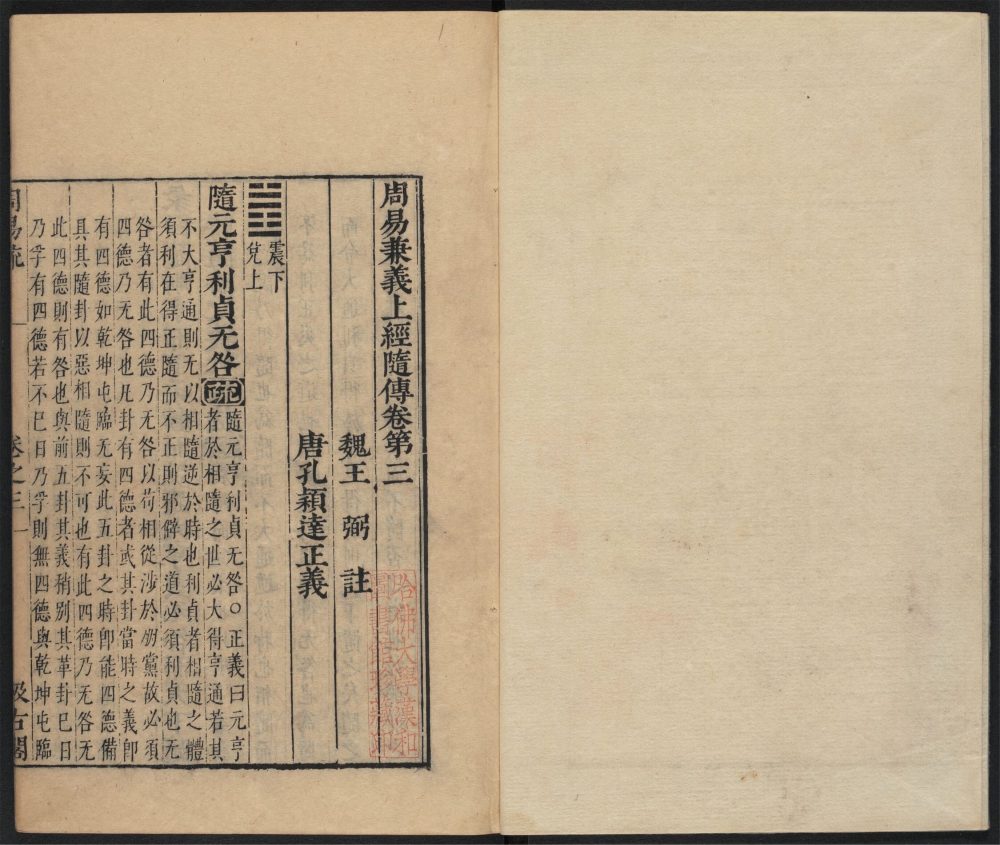 周易兼義上經隨傳卷第三
魏王弼註
唐孔穎達正義
震下
兌上
隨元亨利貞无咎疏
隨元亨利貞无咎○正義曰元亨
者於相隨之世必大得亨通若其
不大亨通則无以相隨逆於時也利貞者相隨之體
須利在得正隨而不正則邪僻之道必須利貞也无
咎者有此四德乃无咎以苟相從涉於朋黨故必須
四德乃无咎也凡卦有四德者或其卦當時之義卽
有四德如乾坤屯臨无妄此五卦之時卽能四德備
具其隨卦以惡相隨則不可也有此四德乃无咎无
此四德則有咎也與前五卦其義稍別其革卦巳日
乃孚有四德若不巳日乃孚則無四德與乾坤屯臨
周易疏
卷之三
一
汲古閣
哈佛大學漢和
圖書館珍藏印